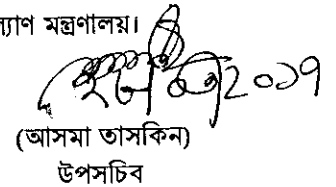 ল্যাণ মন্ত্রণালয়।
২০১৭
(আসমা তাসকিন)
উপসচিব